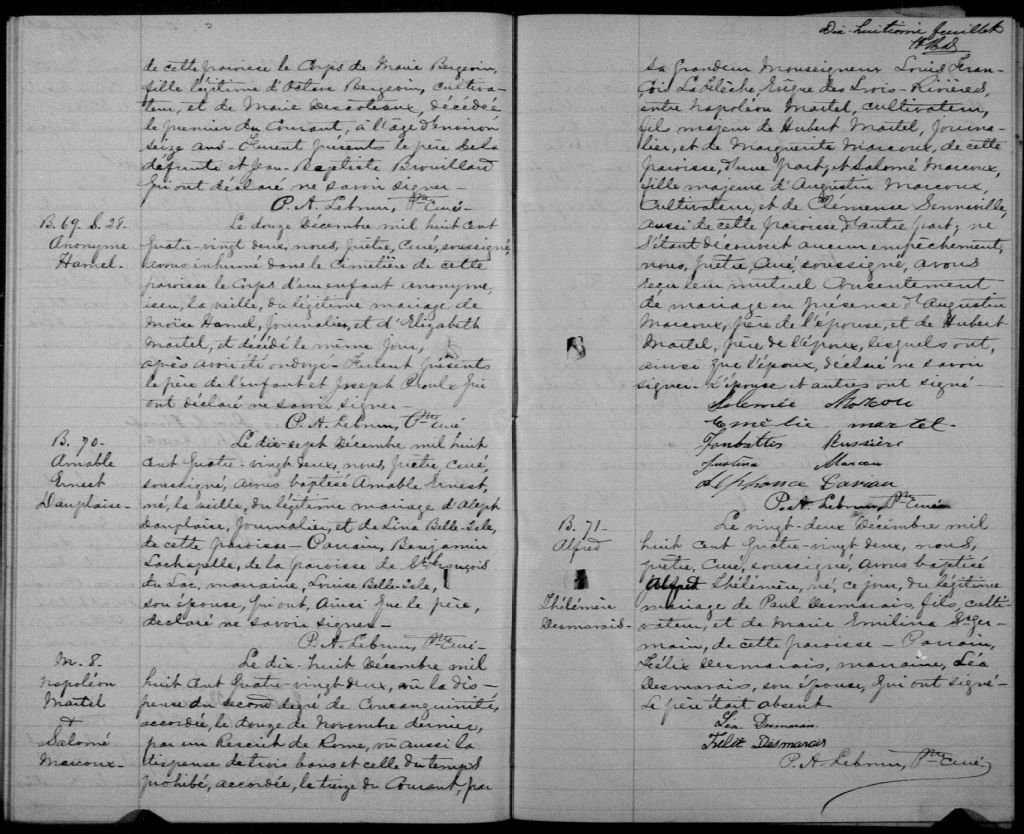 de cette paroisse le Corps de Marie Bergeron,
fille légitime d'Octave Bergeron, cultiva-
teur, et de Marie Descoteaux, décédée
le premier du Courant, à l'âge d'environ
seize ans - Furent présents le père de la
défunte et Jean-Baptiste Brouillard
qui ont déclaré ne savoir signer -
P. A. Lebrun, Ptre Curé -
B. 69. S. 29.
Anonyme
Hamel.
Le douze Décembre mil huit cent
quatre-vingt deux, nous, prêtre, Curé, soussigné,
avons inhumé dans le cimetière de cette
paroisse le Corps d'un enfant anonyme,
issu, la veille, du légitime mariage de
Moïse Hamel, Journalier, et d'Elizabeth
Martel, et décédé le même jour,
après avoir été ondoyé - Furent présents
le père de l'enfant et Joseph Ploulx qui
ont déclaré ne savoir signer -
P. A. Lebrun, Ptre Curé
B. 70 -
Amable
Ernest
Dauplaise -
Le dix-sept Décembre mil huit
cent quatre-vingt deux, nous, prêtre, Curé,
soussigné, avons baptisé Amable Ernest,
né, la veille, du légitime mariage d'Aleph
Dauplaise, Journalier, et de Lina Belle-Isle,
de cette paroisse - Parrain, Benjamin
Lachapelle, de la paroisse de St. François
du Lac, marraine, Louise Belle-Isle,
son épouse, qui ont, ainsi que le père,
déclaré ne savoir signer -
P. A. Lebrun, Ptre Curé -
M. 8.
Napoléon
Martel
&
Salomé
Marcoux -
Le dix-huit Décembre mil
huit cent quatre-vingt deux, vû la dis-
pense du second degré de Consanguinité,
accordée, le douze de Novembre dernier,
par un Rescrit de Rome, vû aussi la
dispense de trois bans et celle du temps
prohibé, accordée, le treize du Courant, par
Dix-huitième feuillet
Sa Grandeur Monseigneur Louis Fran-
çois Laflèche, Evêque des Trois-Rivières,
entre Napoléon Martel, cultivateur,
fils majeur de Hubert Martel, Journa-
lier, et de Marguerite Marcoux, de cette
paroisse, d'une part, et Salomé Marcoux,
fille majeure d'Augustin Marcoux,
Cultivateur, et de Clémense Senneville,
aussi de cette paroisse d'autre part, ne
s'étant découvert aucun empêchement,
nous, prêtre, Curé, soussigné, avons
reçu leur mutuel Consentement
de mariage en présence d'Augustin
Marcoux, père de l'épouse, et de Hubert
Martel, père de l'époux, lesquels ont,
ainsi que l'époux, déclaré ne savoir
signer. L'épouse et autres ont signé -
Salomée Marcou
Emélie martel
Russière
Marcou
P. A. Lebrun, Ptre Curé
B. 71 -
Alfred
Thélémère
Desmarais -
Le vingt-deux Décembre mil
huit cent quatre-vingt deux, nous,
prêtre, Curé, soussigné, avons baptisé
Alfred Thélémère, né, ce jour, du légitime
mariage de Paul Desmarais, fils, culti-
vateur, et de Marie Emilina Ger-
main, de cette paroisse - Parrain,
Félix Desmarais, marraine, Léa
Desmarais, son épouse, qui ont signé -
Le père était absent -
Léa Desmarais
Félix Desmarais
P. A. Lebrun, Ptre Curé